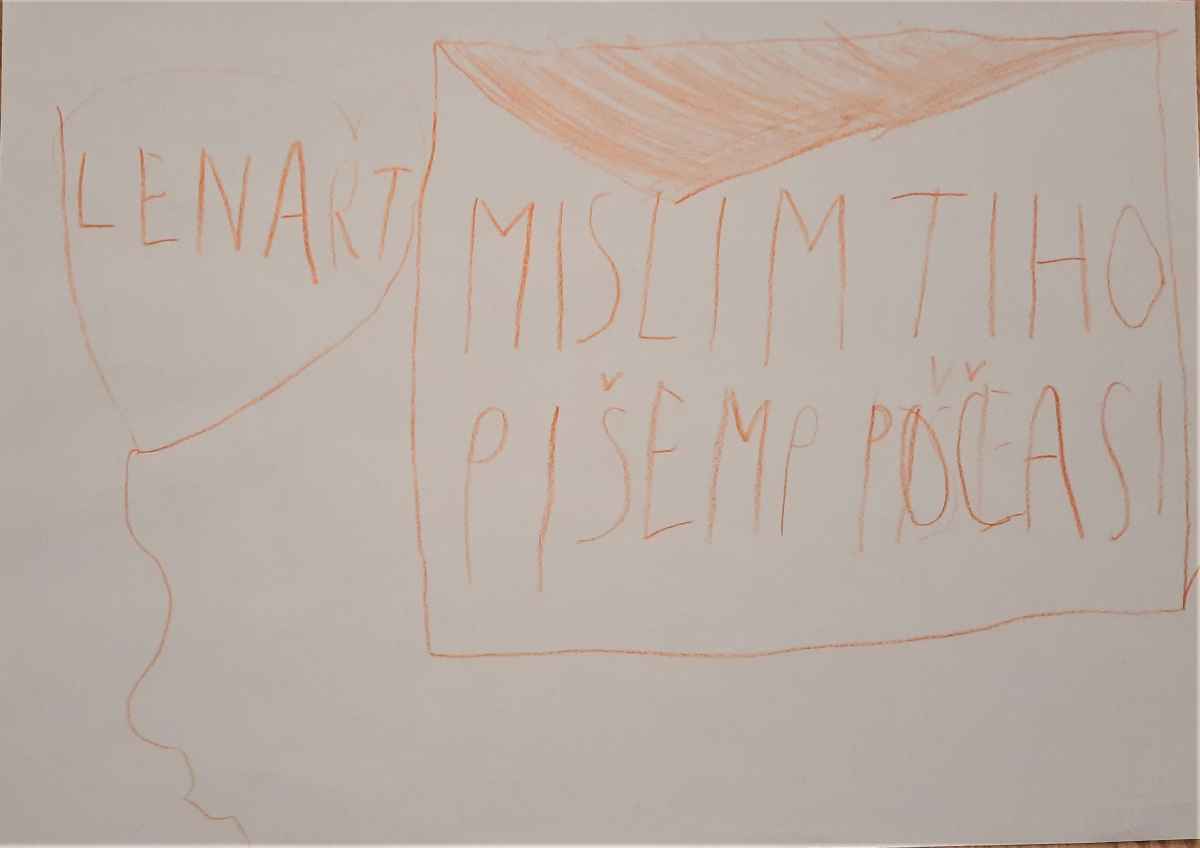 LENART
MISLIM TIHO
PIŠEMP POČASI